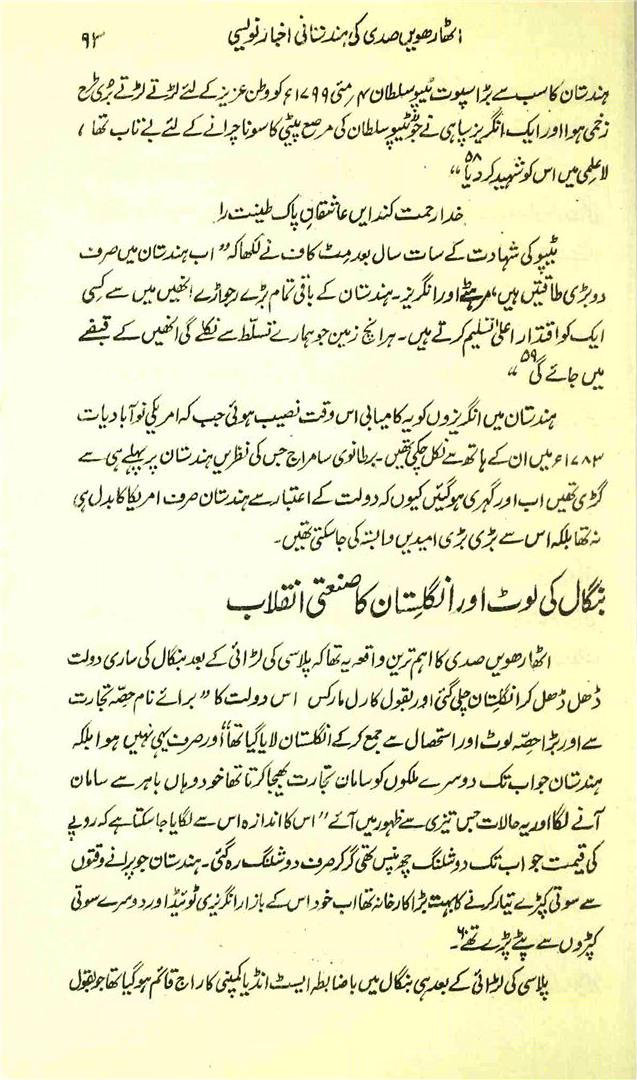 اٹھارھویں صدی کی ہندستانی اخبار نویسی ۹۳
ہندستان کا سب سے بڑا سپوت ٹیپو سلطان ۴؍ مئی ۱۷۹۹ء کو وطن عزیز کے لئے لڑتے لڑتے بُری طرح
زخمی ہوا اور ایک انگریز سپاہی نے جو ٹیپو سلطان کی مرصع پیٹی کا سونا چرانے کے لئے بے تاب تھا ،
لاعلمی میں اس کو شہید کر دیا ۵۸ “
خدا رحمت کند ایں عاشقانِ پاک طینت را
ٹیپو کی شہادت کے سات سال بعد مٹ کاف نے لکھا کہ ” اب ہندستان میں صرف
دو بڑی طاقتیں ہیں، مرہٹے اور انگریز۔ ہندستان کے باقی تمام بڑے رجواڑے انھیں میں سے کسی
ایک کو اقتدار اعلیٰ تسلیم کرتے ہیں۔ ہر انچ زمین جو ہمارے تسلط سے نکلے گی انھیں کے قبضے
میں جائے گی ۵۹ “
ہندستان میں انگریزوں کو یہ کامیابی اس وقت نصیب ہوئی جب کہ امریکی نو آبادیات
۱۷۸۳ء میں ان کے ہاتھ سے نکل چکی تھیں۔ برطانوی سامراج جس کی نظریں ہندستان پر پہلے ہی سے
گڑی تھیں اب اور گہری ہو گئیں کیوں کہ دولت کے اعتبار سے ہندستان صرف امریکا کا بدل ہی
نہ تھا بلکہ اس سے بڑی بڑی امیدیں وابستہ کی جا سکتی تھیں۔
بنگال کی لوٹ اور انگلستان کا صنعتی انقلاب
اٹھارھویں صدی کا اہم ترین واقعہ یہ تھا کہ پلاسی کی لڑائی کے بعد بنگال کی ساری دولت
ڈھل ڈھل کر انگلستان چلی گئی اور بقول کارل مارکس اس دولت کا ” برائے نام حصّہ تجارت
سے اور بڑا حصّہ لوٹ اور استحصال سے جمع کر کے انگلستان لایا گیا تھا“ اور صرف یہی نہیں ہوا بلکہ
ہندستان جو اب تک دوسرے ملکوں کو سامان تجارت بھیجا کرتا تھا خود وہاں باہر سے سامان
آنے لگا اور یہ حالات جس تیزی سے ظہور میں آئے ” اس کا اندازہ اس سے لگایا جا سکتا ہے کہ روپے
کی قیمت جو اب تک دو شلنگ چھ پنس تھی گر کر صرف دو شلنگ رہ گئی۔ ہندستان جو پرانے وقتوں
سے سوتی کپڑے تیار کرنے کا بہت بڑا کارخانہ تھا اب خود اس کے بازار انگریزی ٹوئیڈ اور دوسرے سوتی
کپڑوں سے پٹے پڑے تھے ۶۰۔
پلاسی کی لڑائی کے بعد ہی بنگال میں باضابطہ ایسٹ انڈیا کمپنی کا راج قائم ہو گیا تھا جو بقول